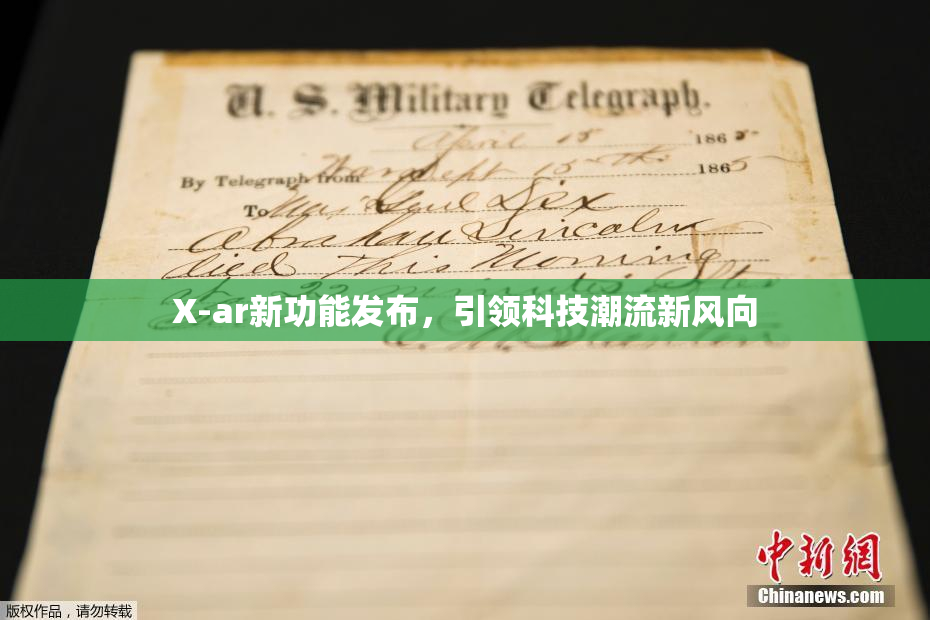 U. S. Military Telegraph.
April 15 1865
By Telegraph from War Dept 15th 1865
To Maj Genl Dix
Abraham Lincoln
died This Morning
at 22 minutes after
X-ar新功能发布，引领科技潮流新风向
E. M. Stanton
中新网
Chinanews.com
版权作品，请勿转载